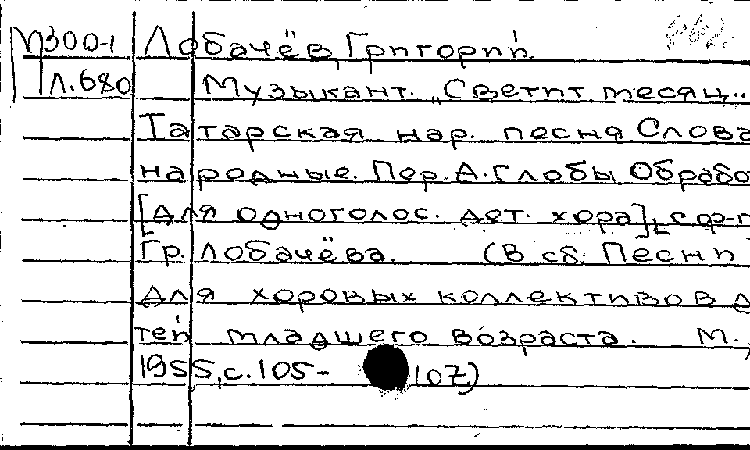 М300-1 Лобачёв, Григорий.
Л.680 Музыкант. „Светит месяц"..
Татарская нар. песня Слова
народные. Пер. А. Глобы Обрабо
[для одноголос. дет. хора], с ф-п
Гр. Лобачёва. (В сб. Песни
для хоровых коллективов д
тей младшего возраста. М.,
1955, с. 105- 107.)